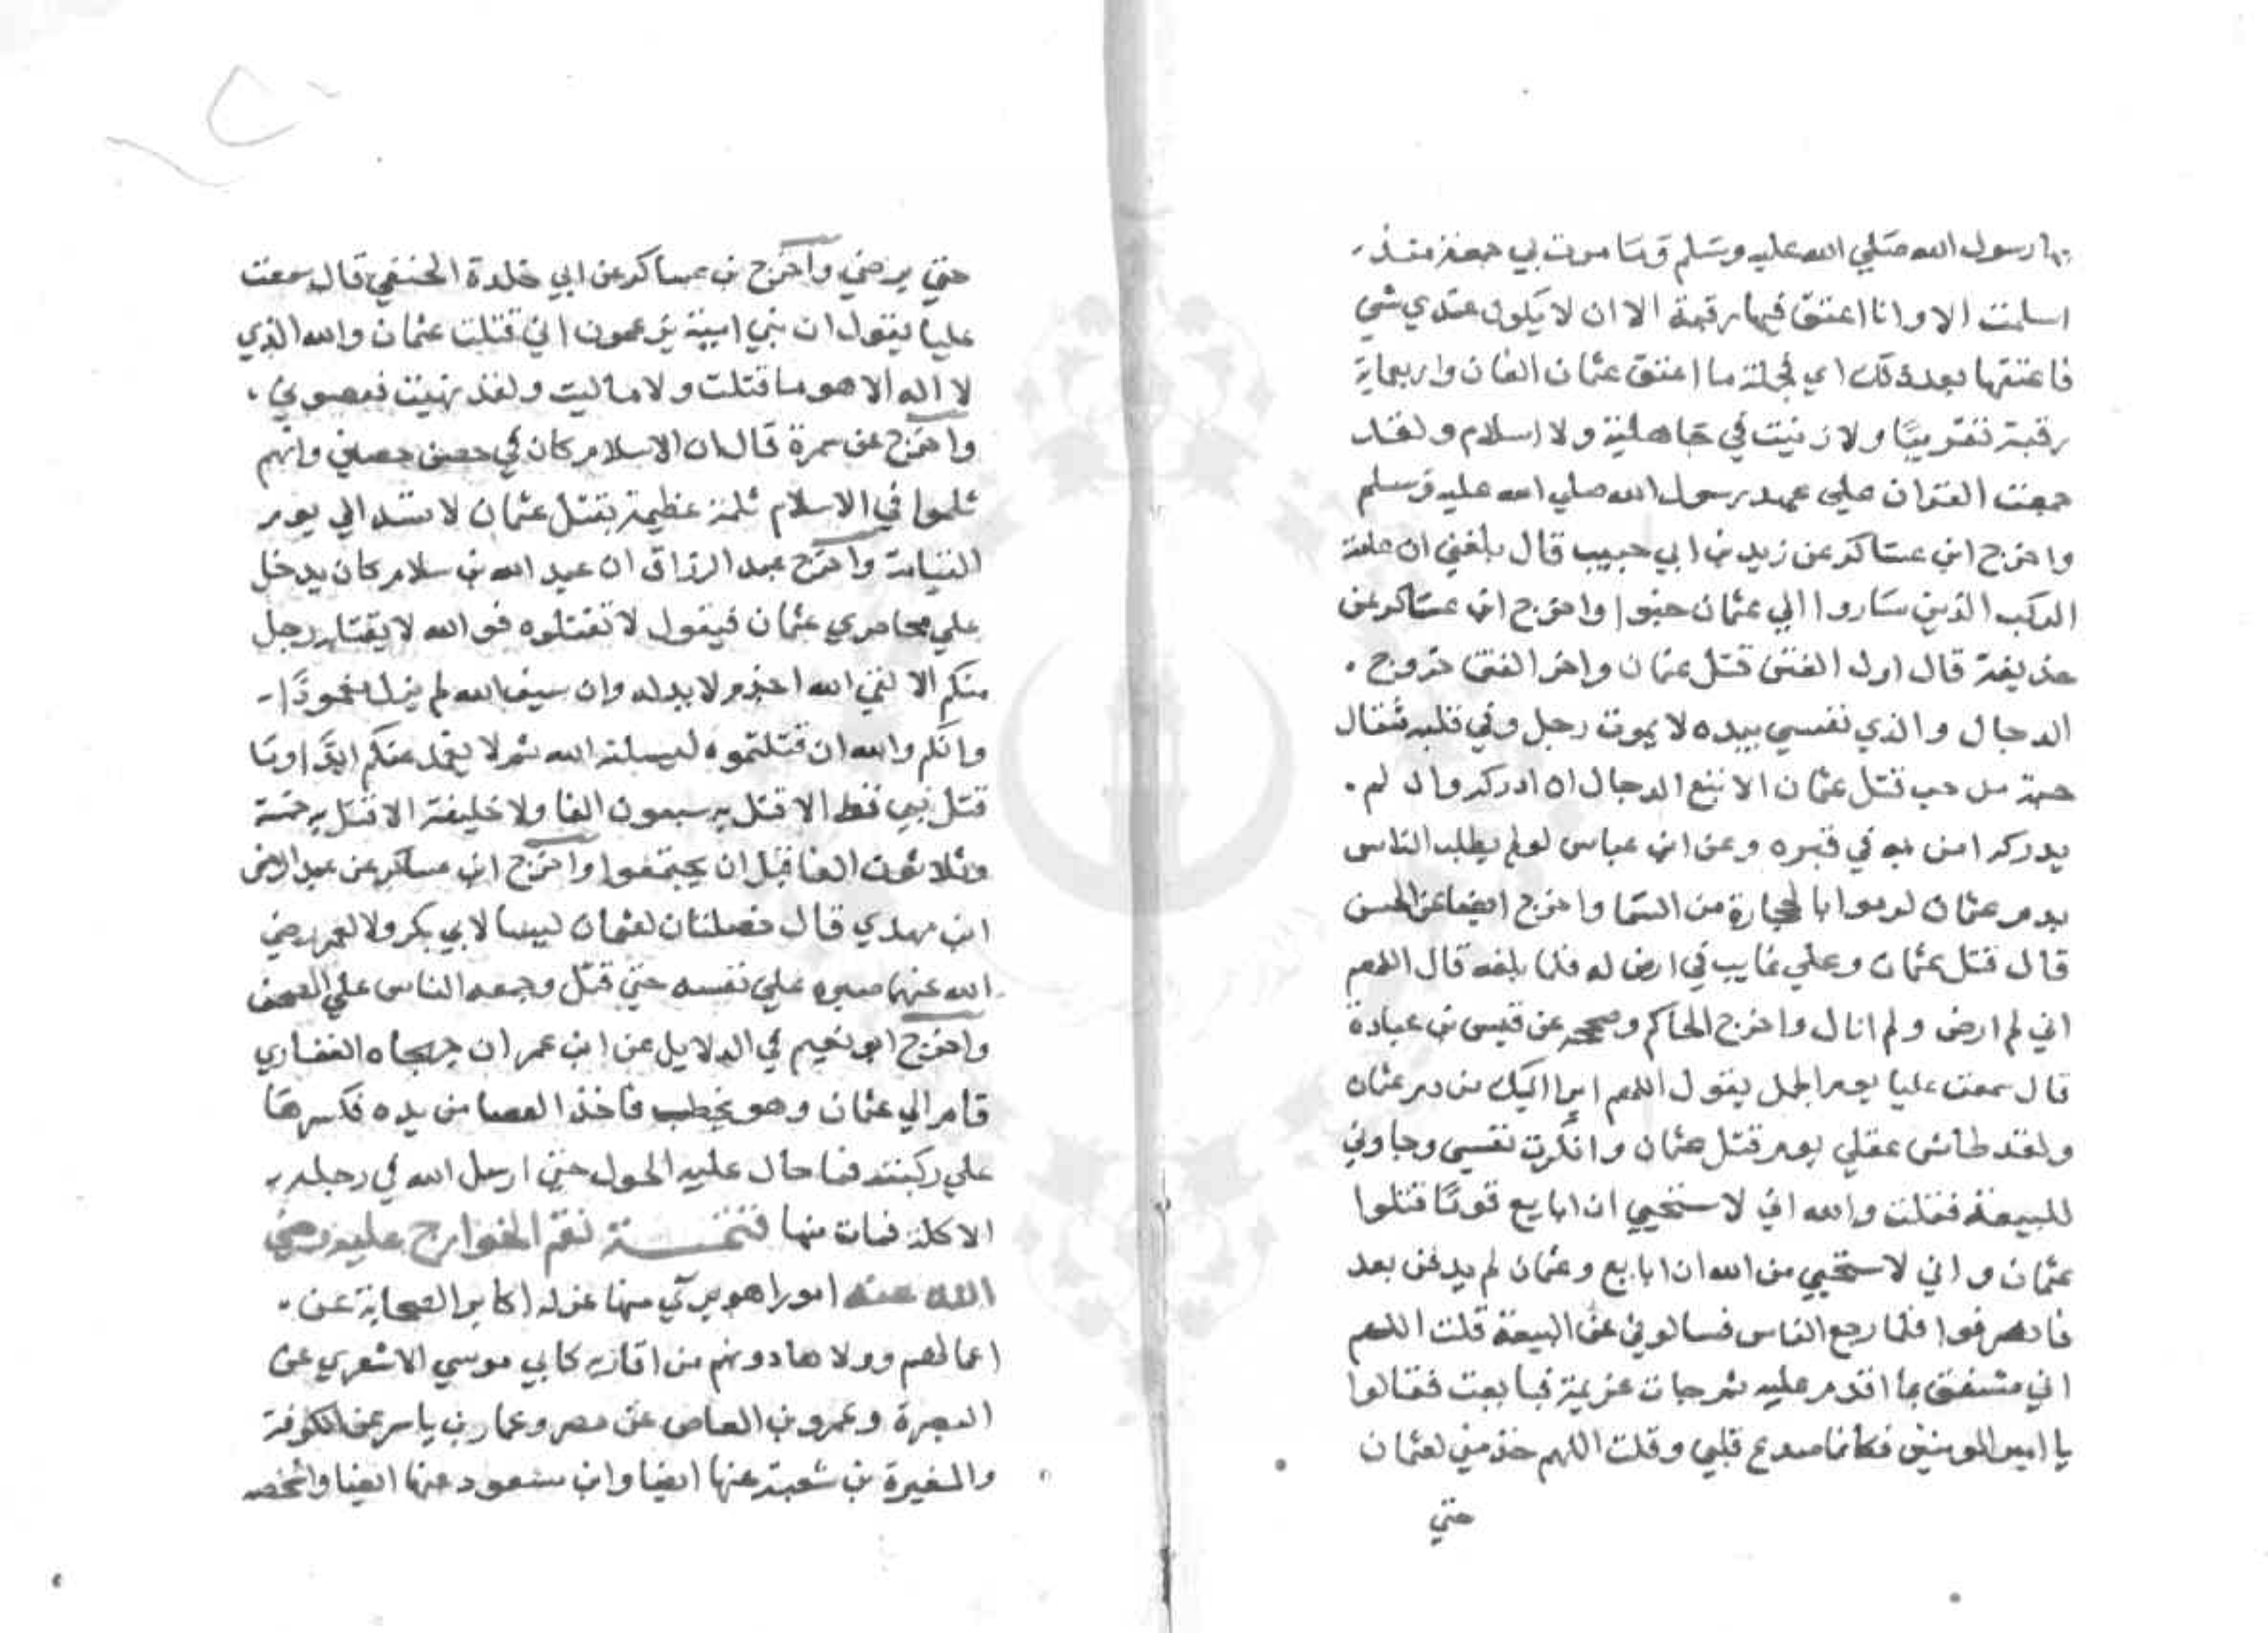 بها رسول الله صلي الله عليه وسلم وما مرت بي جمعة منذ
اسلمت الا وانا اعتق فيها رقبة الا ان لا يكون عندي شي
فاعتقها بعد ذلك اي فجملة ما اعتق عثمان الفان واربعماية
رقبة تقريبا ولا زنيت في جاهلية ولا اسلام ولقد
جمعت القران علي عهد رسول الله صلي الله عليه وسلم
واخرج ابن عساكر عن زيد بن ابي حبيب قال بلغني ان عامة
الركب الذين ساروا الي عثمان جنوا واخرج ابن عساكر عن
حذيفة قال اول الفتن قتل عثمان واخر الفتن خروج
الدجال والذي نفسي بيده لا يموت رجل وفي قلبه مثقال
حبة من حب قتل عثمان الا تبع الدجال ان ادركه وان لم
يدركه امن به في قبره وعن ابن عباس لو لم يطلب الناس
بدم عثمان لرموا بالحجارة من السما واخرج ايضا عن الحسن
قال قتل عثمان وعلي غايب في ارض له فلما بلغه قال اللهم
اني لم ارض ولم امال واخرج الحاكم وصححه عن قيس بن عبادة
قال سمعت عليا يوم الجمل يقول اللهم ابرا اليك من دم عثمان
ولقد طاش عقلي يوم قتل عثمان وانكرت نفسي وجاوني
للبيعة فقلت والله اني لاستحيي ان ابايع قوما قتلوا
عثمان واني لاستحيي من الله ان ابايع وعثمان لم يدفن بعد
فانصرفوا فلما رجع الناس فسالوني عن البيعة قلت اللهم
اني مشفق بما اقدم عليه ثم جات عزيمة فبايعت فقالوا
يا امير المومنين فكانما صدع قلبي وقلت اللهم خذ مني لعثمان
حتي
حتي يرضي واخرج بن عساكر عن ابي خلدة الحنفي قال سمعت
عليا يقول ان بني امية يزعمون اني قتلت عثمان والله الذي
لا اله الا هو ما قتلت ولا ماليت ولقد نهيت فعصوني
واخرج عن سمرة قال ان الاسلام كان في حصن حصين وانهم
ثلموا في الاسلام ثلمة عظيمة بقتل عثمان لا تسد الي يوم
القيامة واخرج عبد الرزاق ان عبد الله بن سلام كان يدخل
علي محاصري عثمان فيقول لا تقتلوه فوالله لا يقتله رجل
منكم الا لقي الله اجذم لا يد له وان سيف الله لم يزل مغمودا
وانكم والله ان قتلتموه ليسلنه الله ثم لا يغمد عنكم ابدا وما
قتل نبي قط الا قتل به سبعون الفا ولا خليفة الا قتل به خمسة
وثلاثون الفا قبل ان يجتمعوا واخرج ابن عساكر عن عبد الرحمن
ابن مهدي قال خصلتان لعثمان ليسا لابي بكر ولا لعمر رضي
الله عنهما صبره علي نفسه حتي قتل وجمعه الناس علي المصحف
واخرج ابو نعيم في الدلايل عن ابن عمر ان جهجاه الغفاري
قام الي عثمان وهو يخطب فاخذ العصا من يده فكسرها
علي ركبته فما حال عليه الحول حتي ارسل الله في رجله
الاكلة فمات منها تتمة نقم الخوارج عليه رضي
الله عنه امورا هو بري منها عزله اكابر الصحابة عن
اعمالهم وولاها دونهم من اقاربه كابي موسي الاشعري عن
البصرة وعمرو بن العاص عن مصر وعمار بن ياسر عن الكوفة
والمغيرة بن شعبة عنها ايضا وابن مسعود عنها ايضا واشخصه